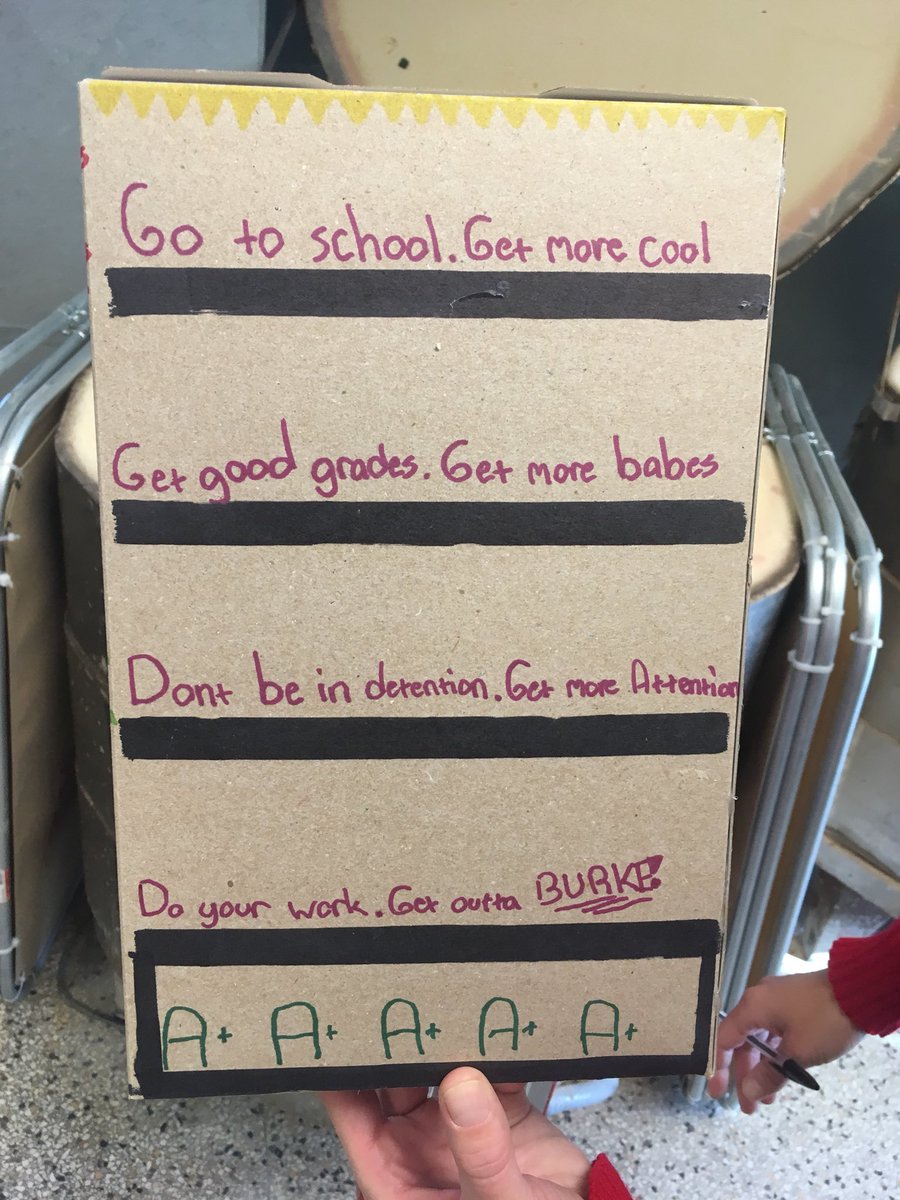 Go to school. Get more cool
Get good grades. Get more babes
Dont be in detention. Get more Attention
Do your work. Get outta BURKE
A+ A+ A+ A+ A+